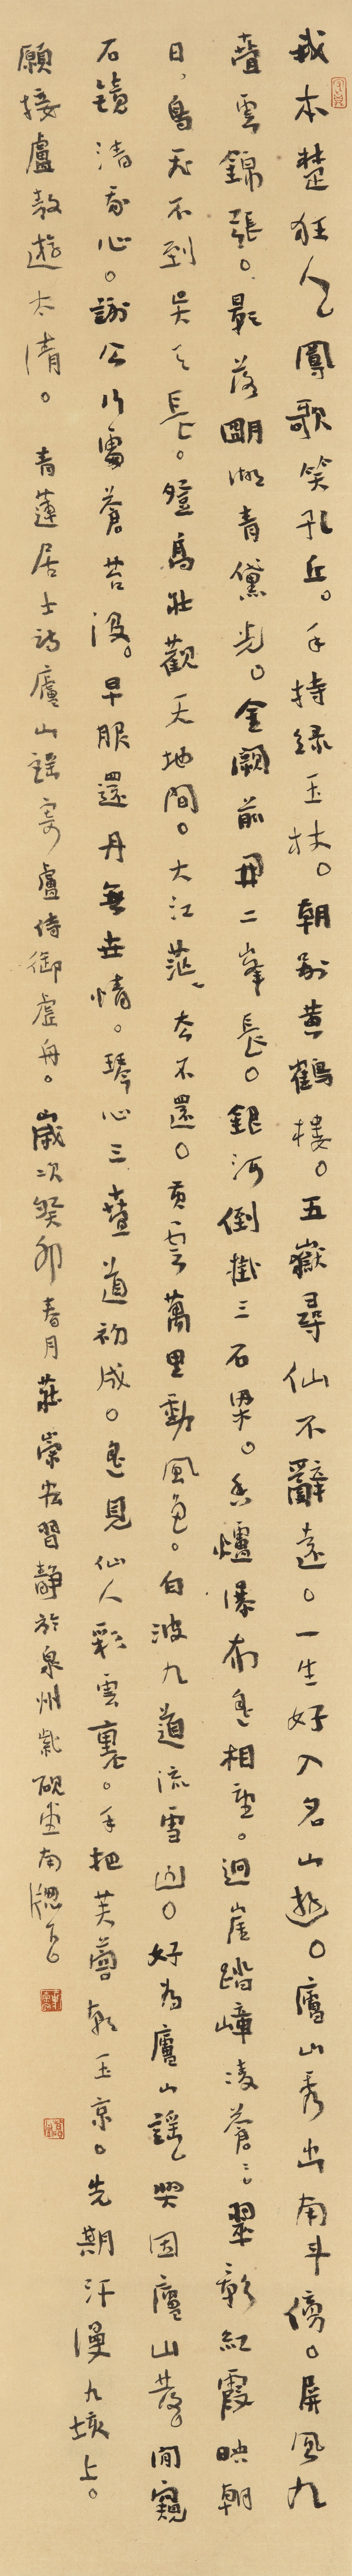 我本楚狂人。鳳歌笑孔丘。手持綠玉杖。朝別黃鶴樓。五嶽尋仙不辭遠。一生好入名山遊。廬山秀出南斗傍。屏風九
疊雲錦張。影落明湖青黛光。金闕前開二峯長。銀河倒掛三石梁。香爐瀑布遙相望。迴崖踏嶂凌蒼蒼。翠影紅霞映朝
日，鳥飛不到吳天長。登高壯觀天地間。大江茫茫去不還。黃雲萬里動風色。白波九道流雪山。好為廬山謠，興因廬山發。閒窺
石鏡清我心。謝公行處蒼苔沒。早服還丹無世情。琴心三疊道初成。遙見仙人彩雲裏。手把芙蓉朝玉京。先期汗漫九垓上。
願接盧敖遊太清。 青蓮居士詩廬山謠寄盧侍御虛舟。歲次癸卯春月莊崇宏習靜於泉州紫硯堂南牕下